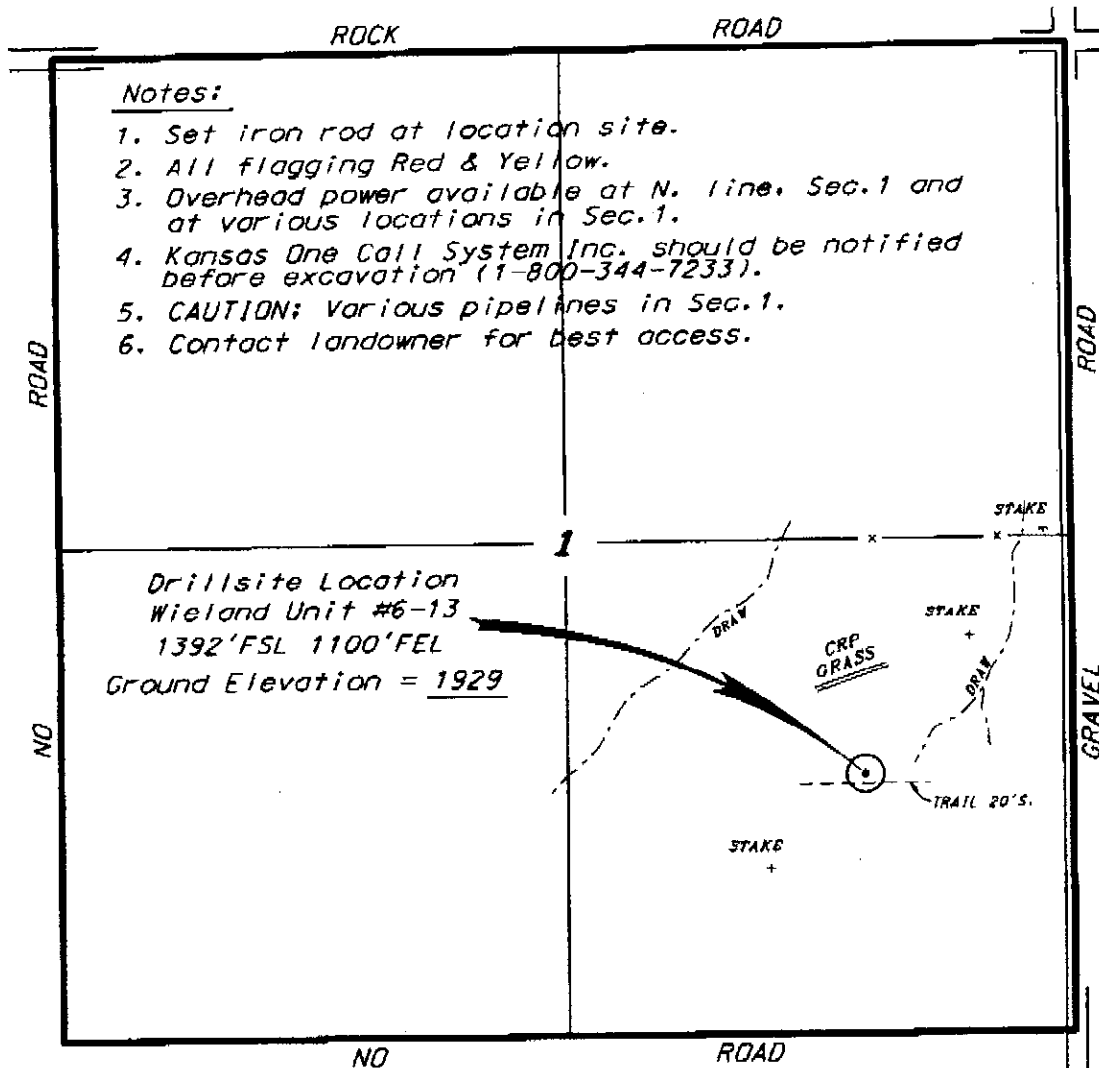 ROCK ROAD
Notes:
1. Set iron rod at location site.
2. All flagging Red & Yellow.
3. Overhead power available at N. line, Sec.1 and
at various locations in Sec.1.
4. Kansas One Call System Inc. should be notified
before excavation (1-800-344-7233).
5. CAUTION: Various pipelines in Sec.1.
6. Contact landowner for best access.
ROAD
ROAD
STAKE
1
Drillsite Location
Wieland Unit #6-13
1392'FSL 1100'FEL
Ground Elevation = 1929
DRAW
STAKE
CRP
GRASS
DRAW
NO
GRAVEL
TRAIL 20'S.
STAKE
NO ROAD